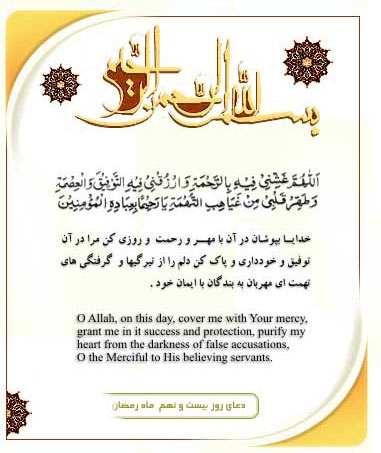 بسم الله الرحمن الرحیم
اَللّٰهُمَّ غَشِّنی فیهِ بِالرَّحْمَةِ وَارْزُقْنی فیهِ التَّوْفیقَ وَالْعِصْمَةَ
وَطَهِّرْ قَلْبی مِنْ غَیاهِبِ التُّهْمَةِ یارَحیماً بِعِبادِهِ الْمُؤْمِنینَ
خدایا بپوشان در آن با مهر و رحمت و روزی کن مرا در آن
توفیق و خودداری و پاک کن دلم را از تیرگیها و گرفتگی های
تهمت ای مهربان به بندگان با ایمان خود .
O Allah, on this day, cover me with Your mercy,
grant me in it success and protection, purify my
heart from the darkness of false accusations,
O the Merciful to His believing servants.
دعای روز بیست و نهم ماه رمضان